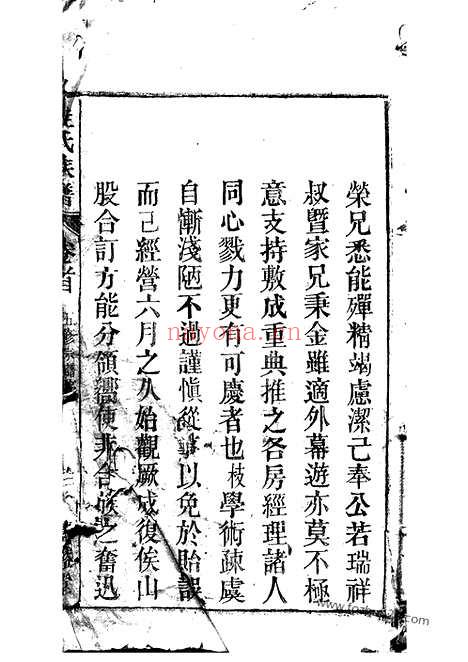 榮兄悉能殫精竭慮潔己奉公若瑞祥
叔暨家兄秉金雖適外幕遊亦莫不極
意支持敷成重典推之各房經理諸人
同心戮力更有可慶者也枝學術疎虞
自慚淺陋不過謹慎從事以免於貽誤
而已經營六月之久始觀厥成復俟山
股合訂方能分領嚮使非合族之奮迅
氏族譜
卷首
nayona.cn